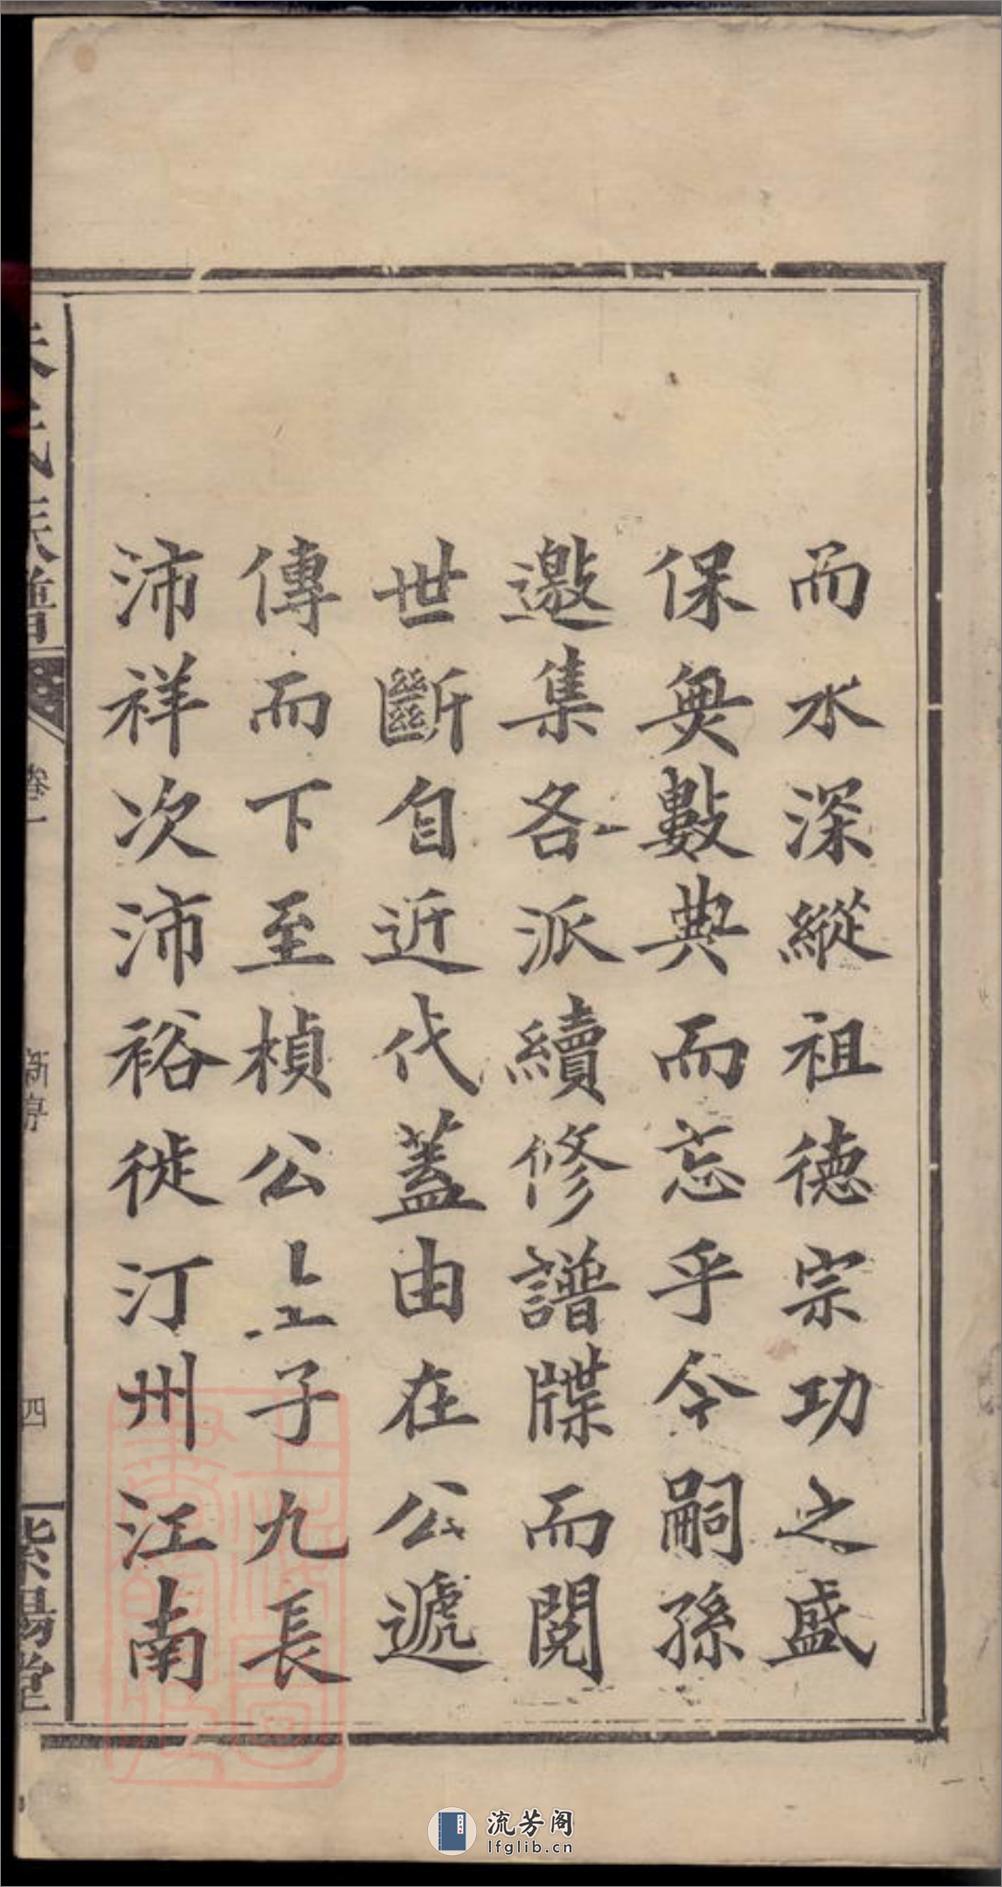 而水深縱祖德宗功之盛
保無數典而忘乎今嗣孫
邀集各派續修譜牒而閱
世斷自近代蓋由在公遞
傳而下至楨公生子九長
沛祥次沛裕徙汀州江南
朱氏族譜
卷一
新序
四
紫陽堂
流芳阁
lfglib.cn